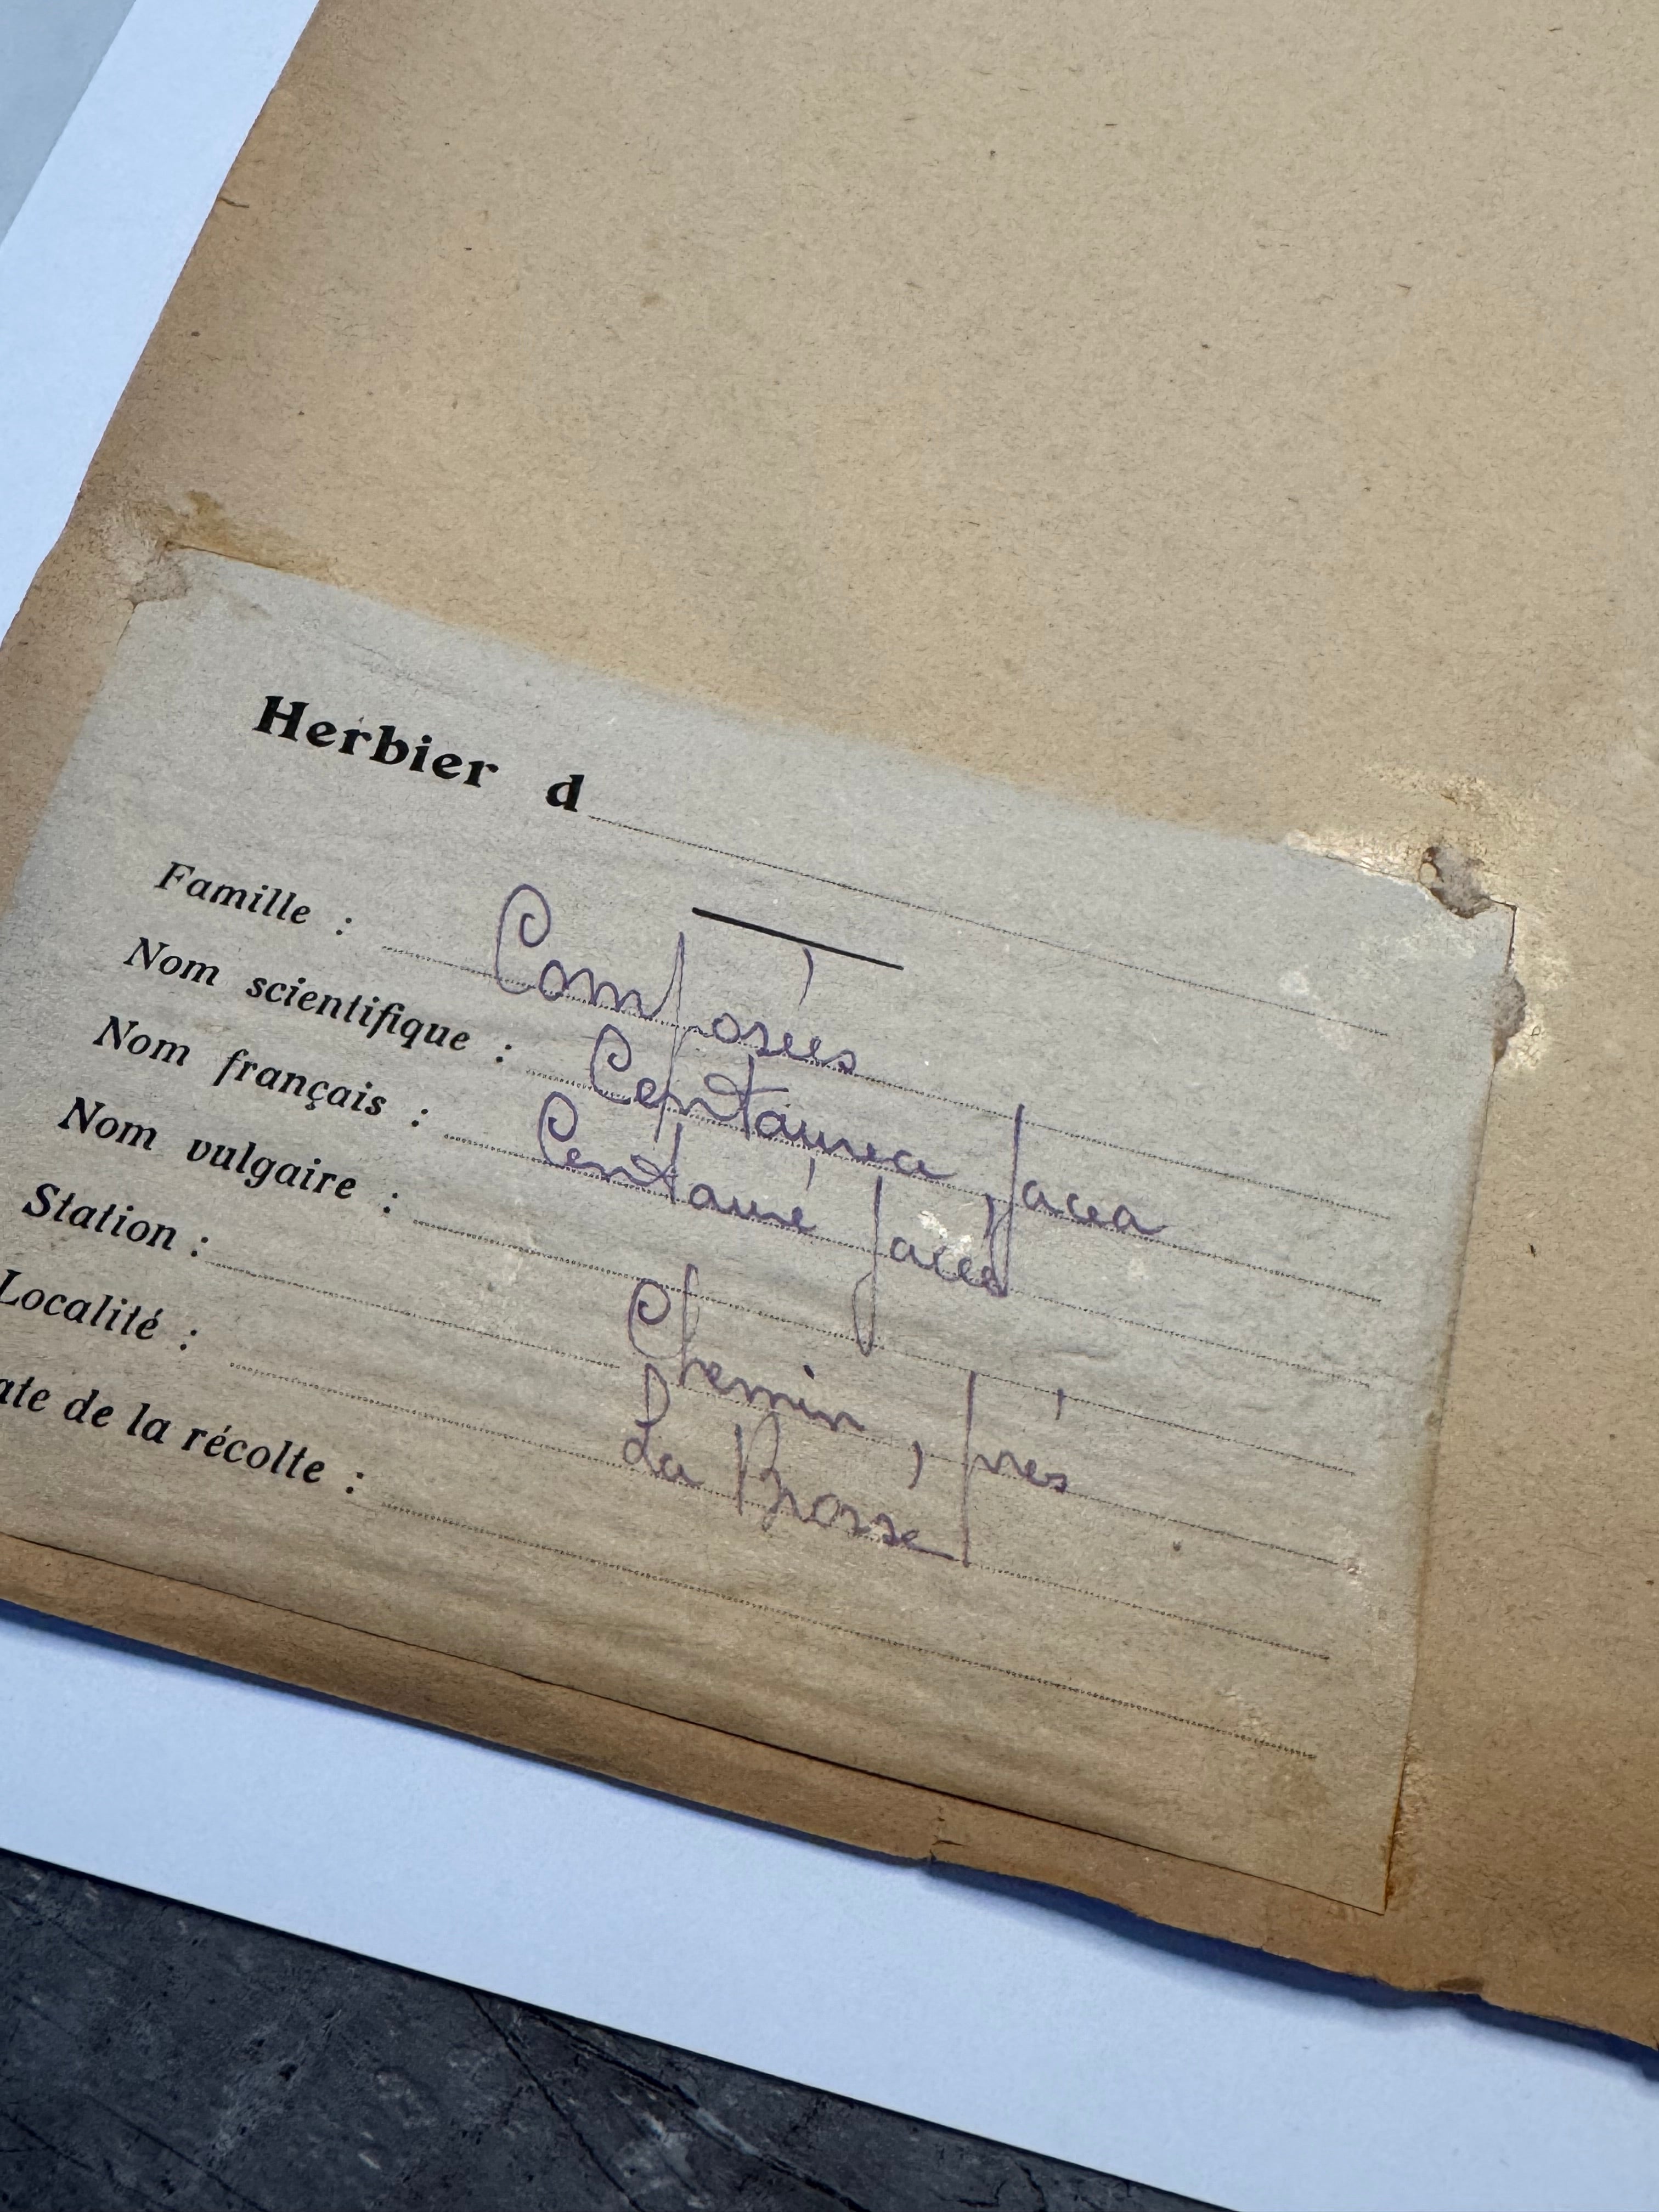 Herbier d
Famille : Composées
Nom scientifique : Centaurea Jacea
Nom français : Centauré Jacée
Nom vulgaire :
Station : Chemin, prés
Localité : La Brosse
ate de la récolte :